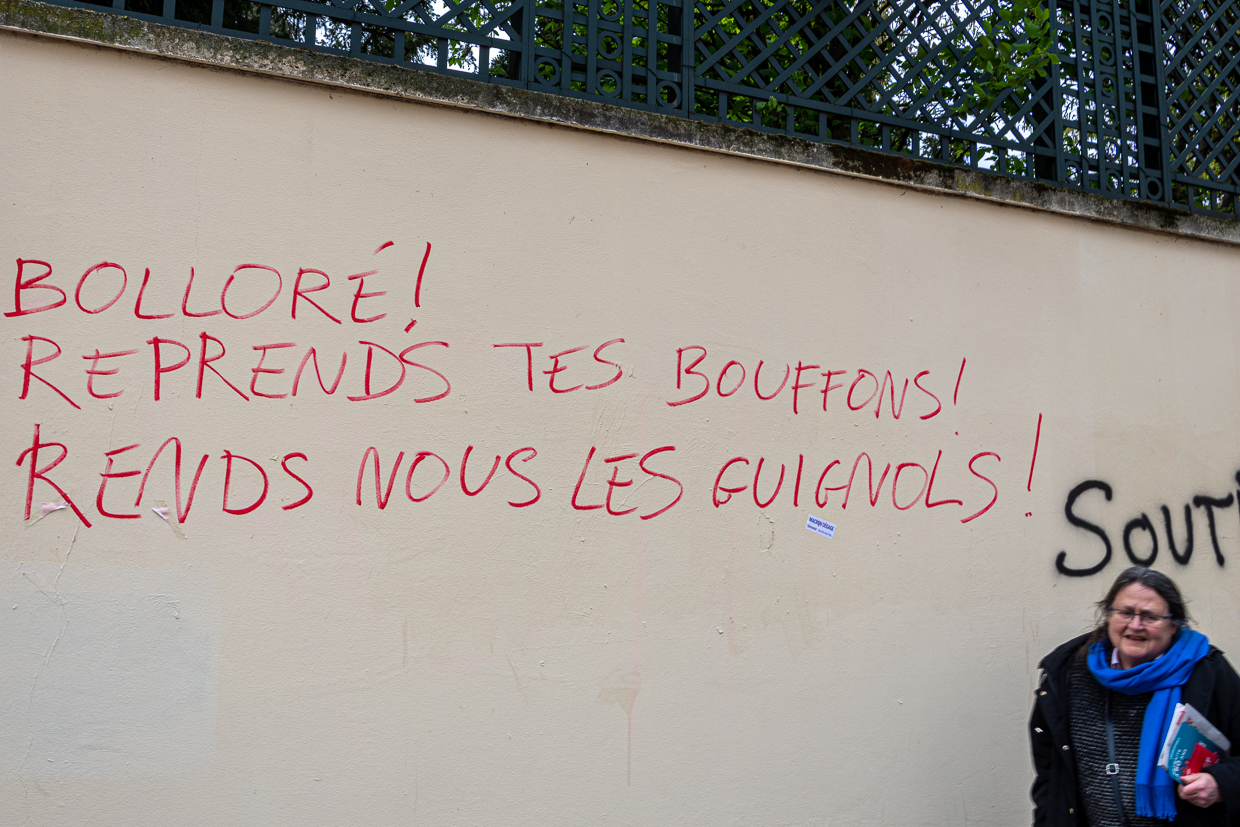 BOLLORÉ!
REPRENDS TES BOUFFONS!
RENDS NOUS LES GUIGNOLS!
SOUTI
MACRON DÉGAGE